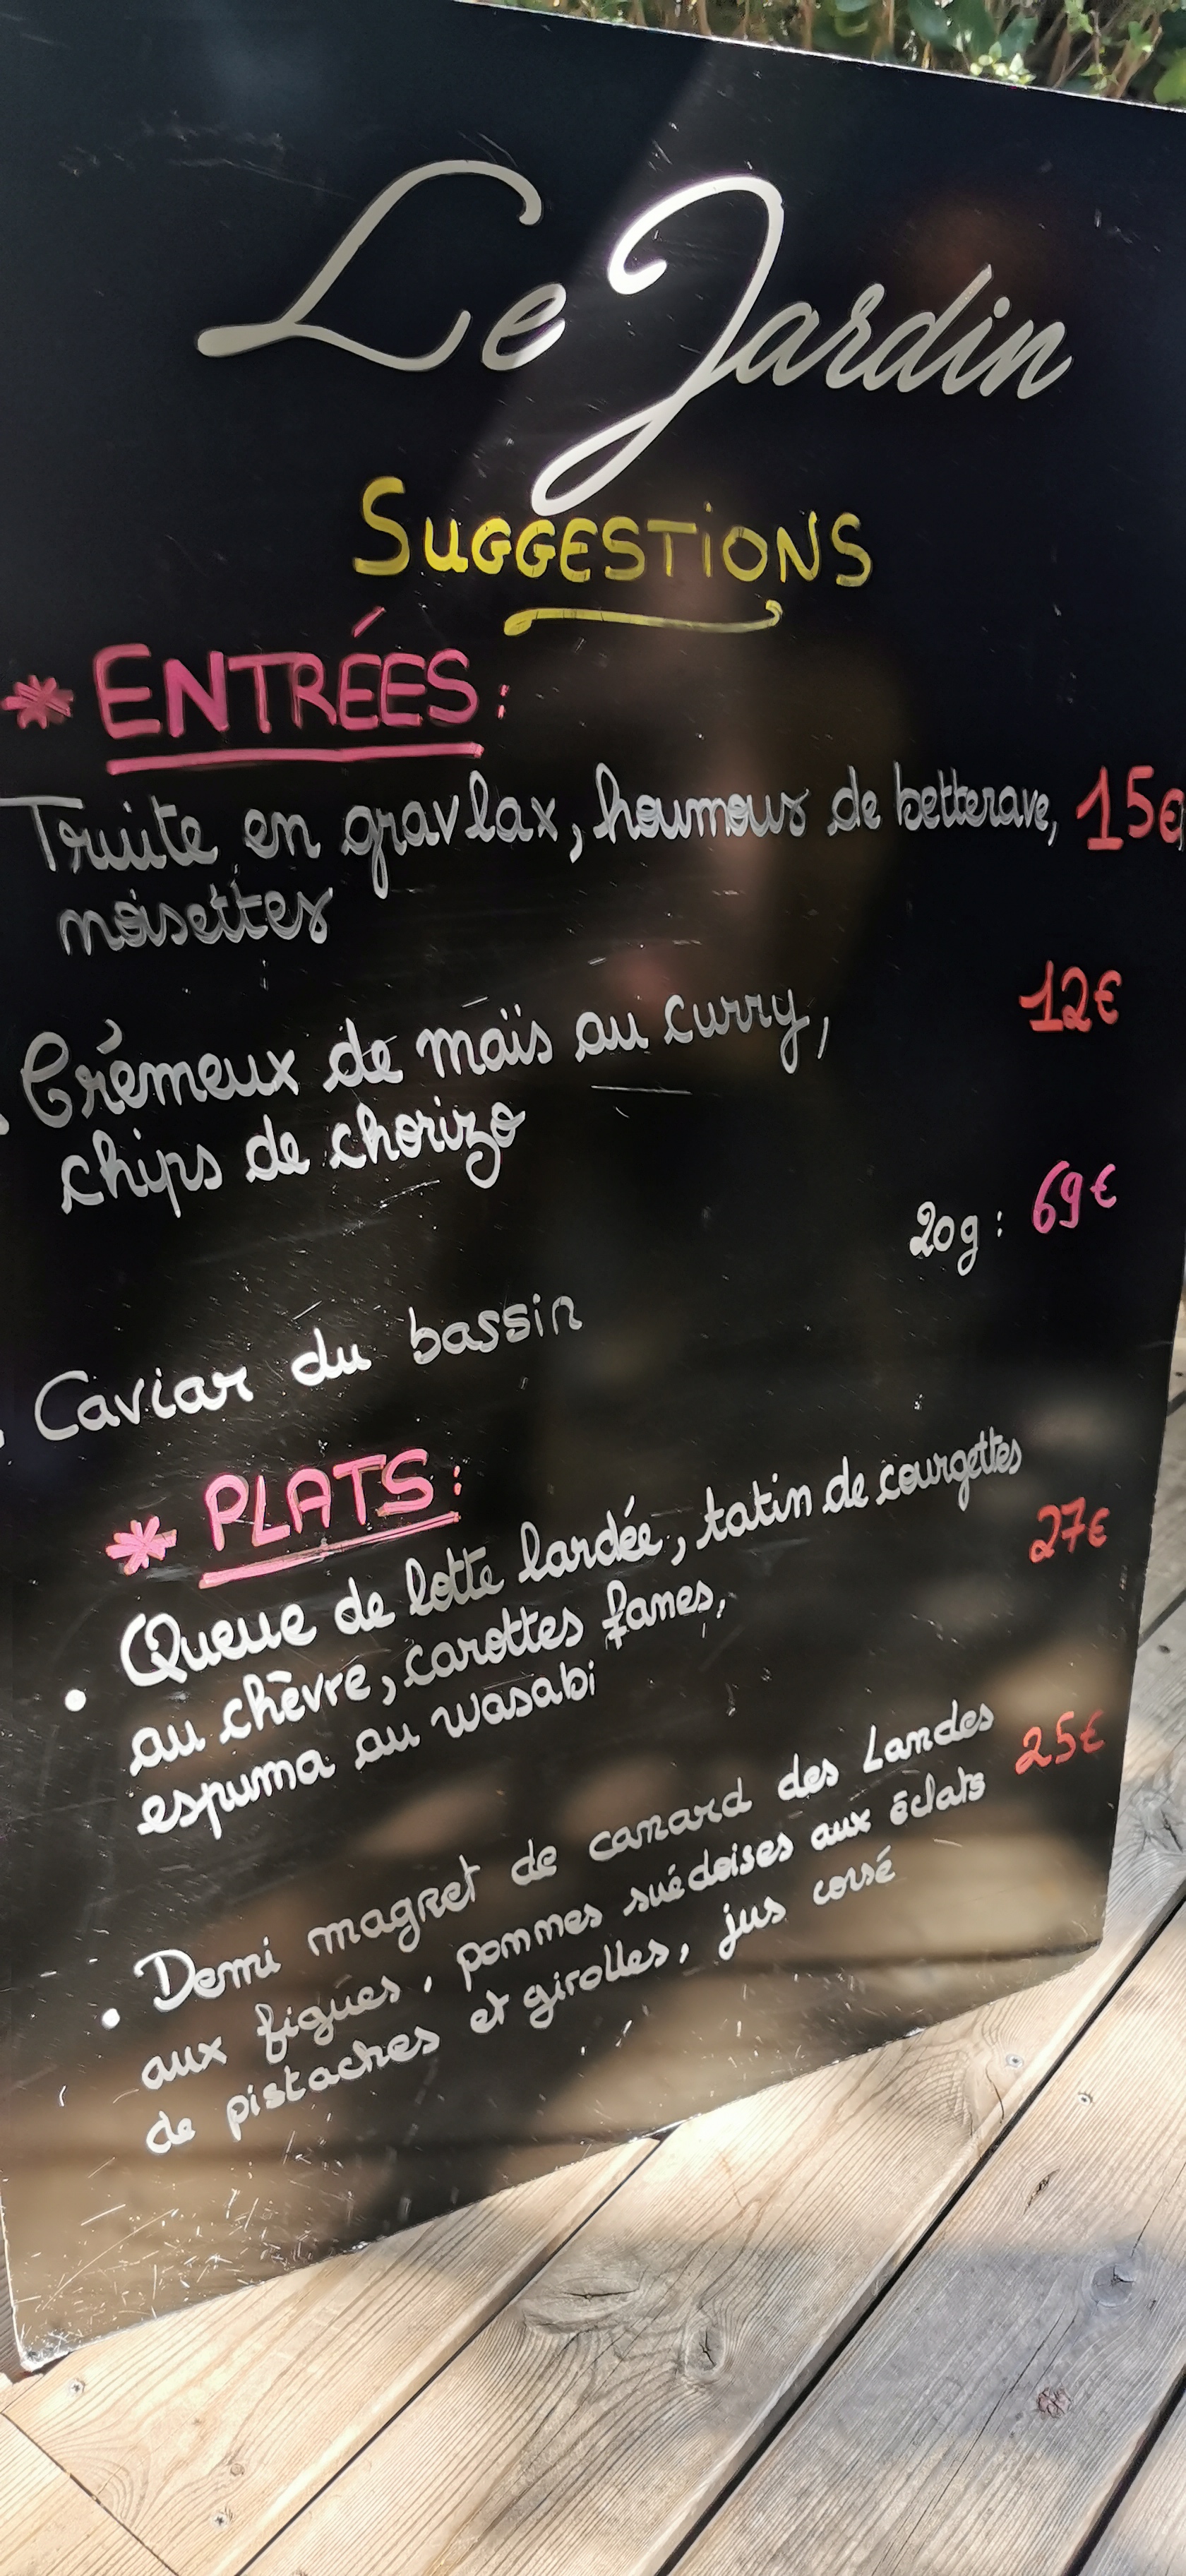 Le Jardin
SUGGESTIONS
* ENTRÉES :
Truite en gravlax, houmous de betterave, 15€
noisettes
Crémeux de maïs au curry, 12€
chips de chorizo
20g : 69€
Caviar du bassin
* PLATS :
• Queue de lotte lardée, tatin de courgettes
au chèvre, carottes fanes, 27€
espuma au wasabi
• Demi magret de canard des Landes 25€
aux figues, pommes suédoises aux éclats
de pistaches et girolles, jus corsé